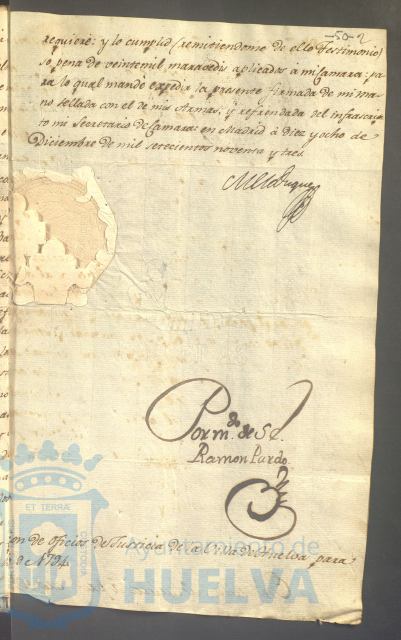 -50-2
requiere: y lo cumplid (remiciendome de ello Testimonio)
so pena de veintemil maravedis aplicados à mi Camara: pa
ra lo qual mandè expedir la presente firmada de mi ma
no sellada con el de mis Armas, y refrendada del infrascrip
to mi Secretario de Camara: en Madrid à Diez y ocho de
Diciembre de mil setecientos noventa y tres.
Por m.do de S.E.
Ramon Pardo
on de oficios de Justicia de la Villa de Huelva, para
de 1794.
ET TERRÆ
Ayuntamiento de
HUELVA